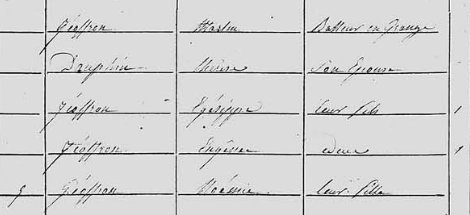 Geoffron Martin Batteur en Grange
Dauphin Son Epouse
Geoffron Egésippe leur fils 1
Geoffron Eugène idem 1
5 Geoffron Noémie leur fille